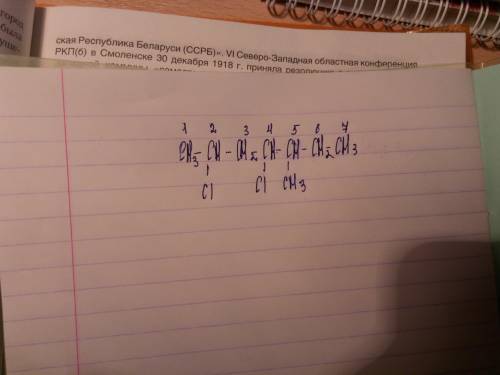 город
была
ская Республика Беларуси (ССРБ)». VI Северо-Западная областная конференция
РКП(б) в Смоленске 30 декабря 1918 г. приняла
1 2 3 4 5 6 7
CH3-CH-CH2-CH-CH-CH2CH3
Cl Cl CH3